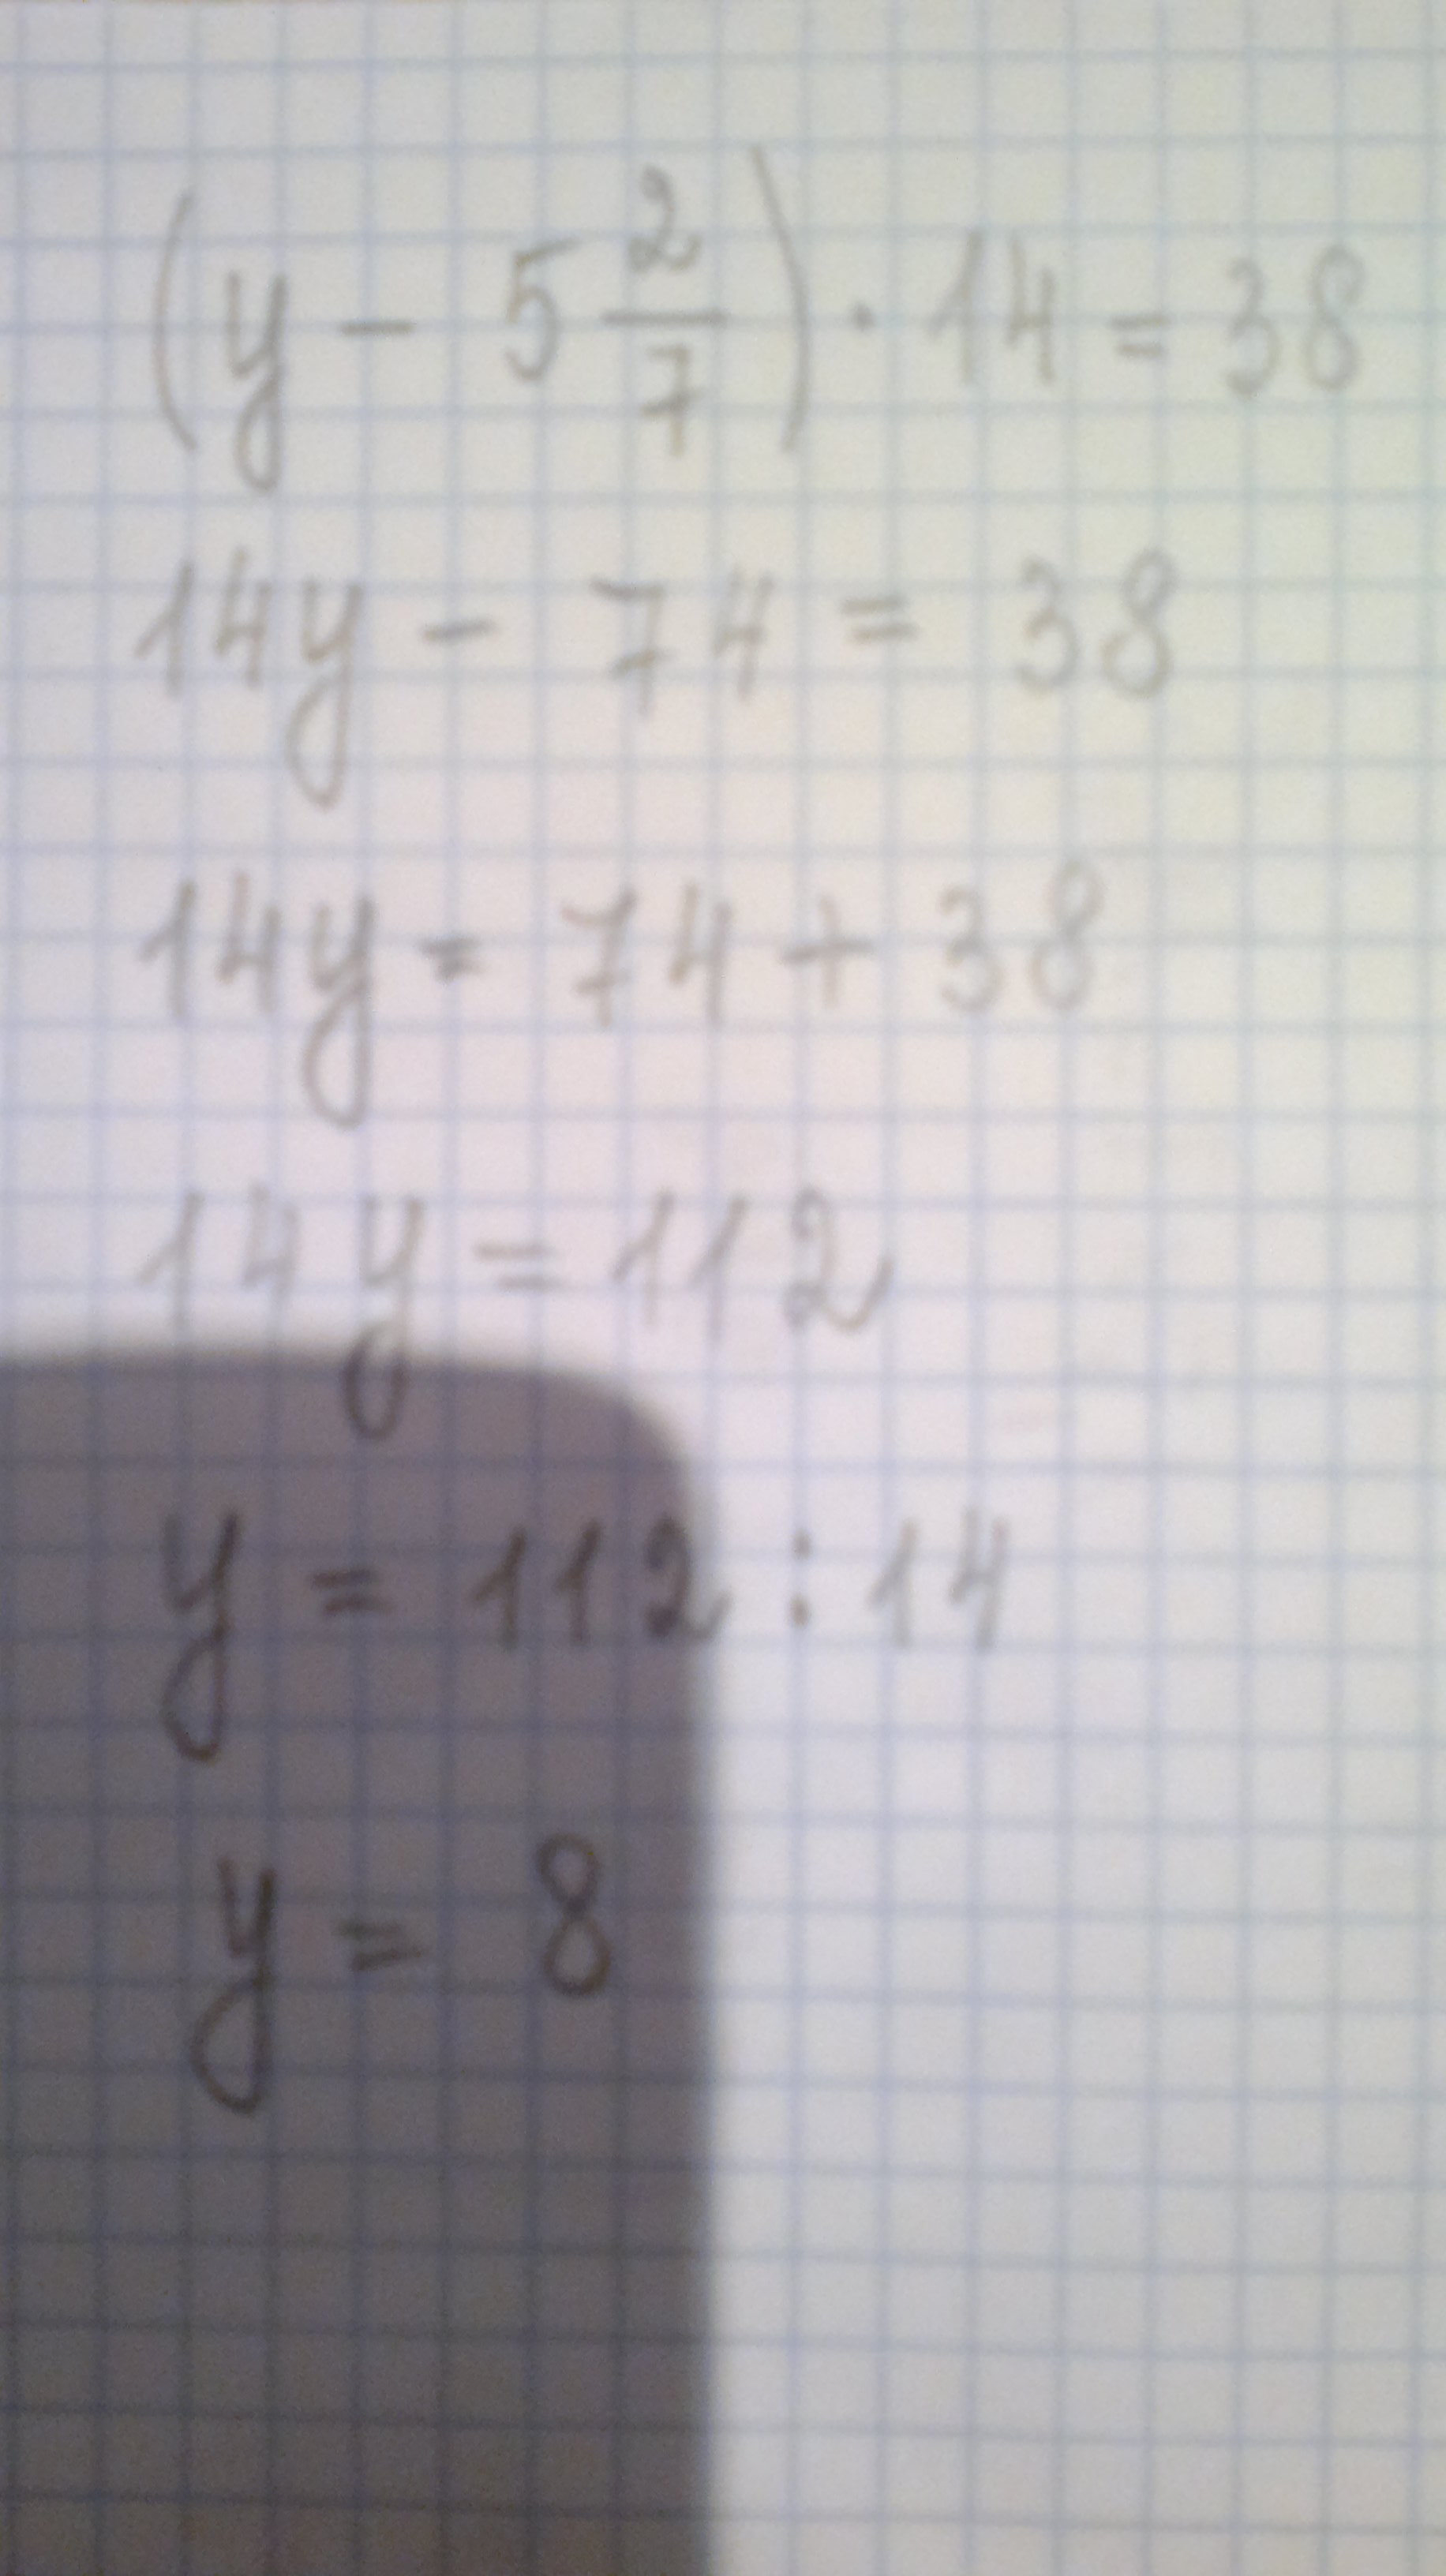 (y - 5 2/7) · 14 = 38
14y - 74 = 38
14y = 74 + 38
14y = 112
y = 112 : 14
y = 8